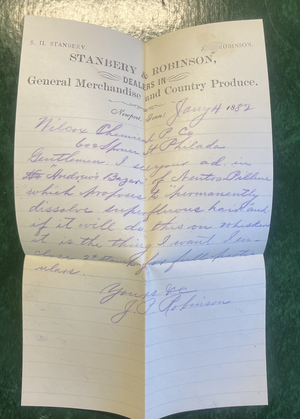 S. H. STANBERY. J. P. ROBINSON.
STANBERY & ROBINSON,
DEALERS IN
General Merchandise and Country Produce.
Newport, Tenn: Jany 4 1882
Wilcox Chemical P Co
Spruce St Philada
Gentlemen. I see your ad in
the Andrews Bazar of
which proposes to "permanently
dissolve superfluous hair" and
if it will do this on whiskers
it is the thing I want I en-
close for full particu-
lars.
Yours &c
J. P. Robinson